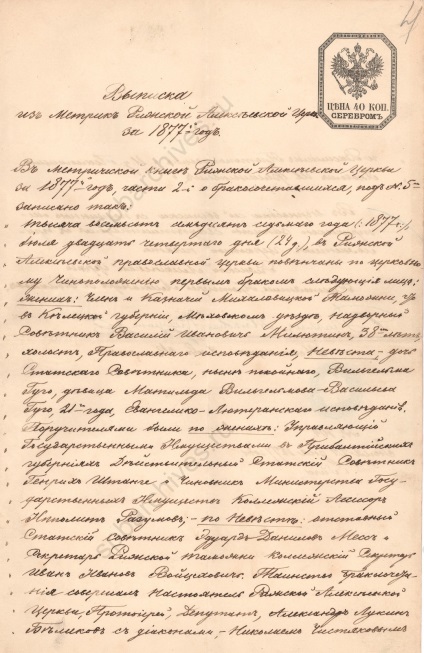 4
ЦѢНА 40 КОП.
СЕРЕБРОМЪ.
Выписка
изъ Метрикъ Рижской Алексѣевской Церкви
за 1877й годъ.
Въ Метрической книгѣ Рижской Алексѣевской Церкви
за 1877й годъ, части 2й о бракосочетавшихся, подъ № 5м
записано такъ:
Тысяча восемьсотъ семьдесятъ седьмаго года (:1877 г:)
Іюля двадцать четвертаго дня (24 д), въ Рижской
Алексѣевской православной Церкви повѣнчаны по церковно
му чиноположенію первымъ бракомъ слѣдующія лица:
Женихъ: Членъ и Казначей Михаловицкой Таможни, что
въ Кѣлецкой губерніи, Мѣховскомъ уѣздѣ, надворный
Совѣтникъ Василій Ивановичъ Милютинъ, 38 лѣтъ,
холостъ, Православнаго исповѣданія, Невѣста - дочь
Статскаго Совѣтника, нынѣ покойнаго, Вильгельма
Гуго, дѣвица Матильда Вильгельмова-Васильева
Гуго, 21 года, Евангелико-Лютеранскаго исповѣданія.
Поручителями были по женихѣ: Управляющій
Государственными Имуществами въ Прибалтійскихъ
губерніяхъ Дѣйствительный Статскій Совѣтникъ
Генрихъ Штанге и Чиновникъ Министерства Госу-
дарственныхъ Имуществъ Коллежскій Ассесоръ
Ипполитъ Разумовъ; - по Невѣстѣ: отставной
Статскій Совѣтникъ Эдуардъ Даниловъ и
Секретарь Рижской таможни Коллежскій Секретарь
Иванъ Ивановъ Войцеховичъ. Таинство бракосочета-
нія совершалъ Настоятель Рижской Алексѣевской
Церкви, Протоіерей, Депутатъ, Александръ Лукинъ
съ діаконами, - Николаемъ Чистяковымъ